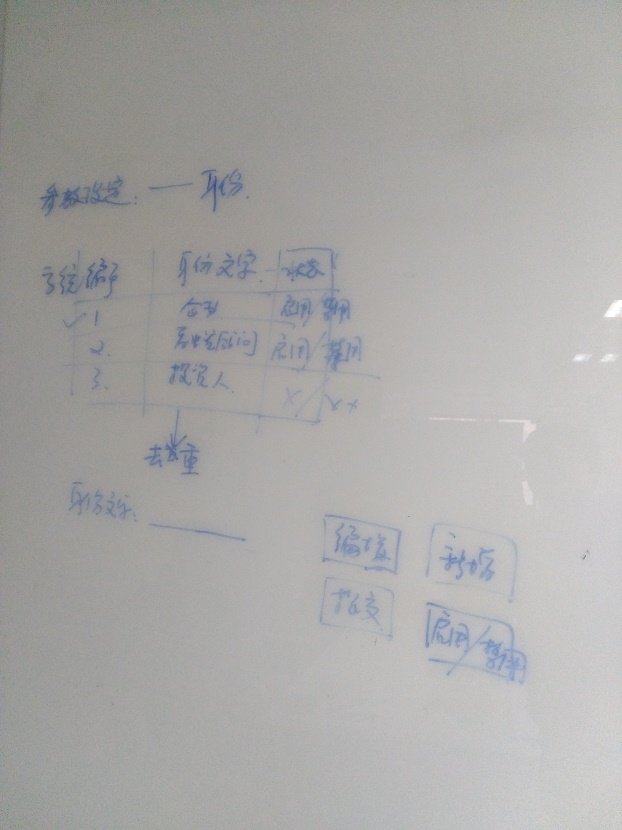 参数设定：— 身份.
系统编号 身份文字 状态
✓1 企业 启用/禁用
2. 顾问 启用/禁用
3. 投资人
去重
身份文字：
编辑 新增
提交 启用/禁用